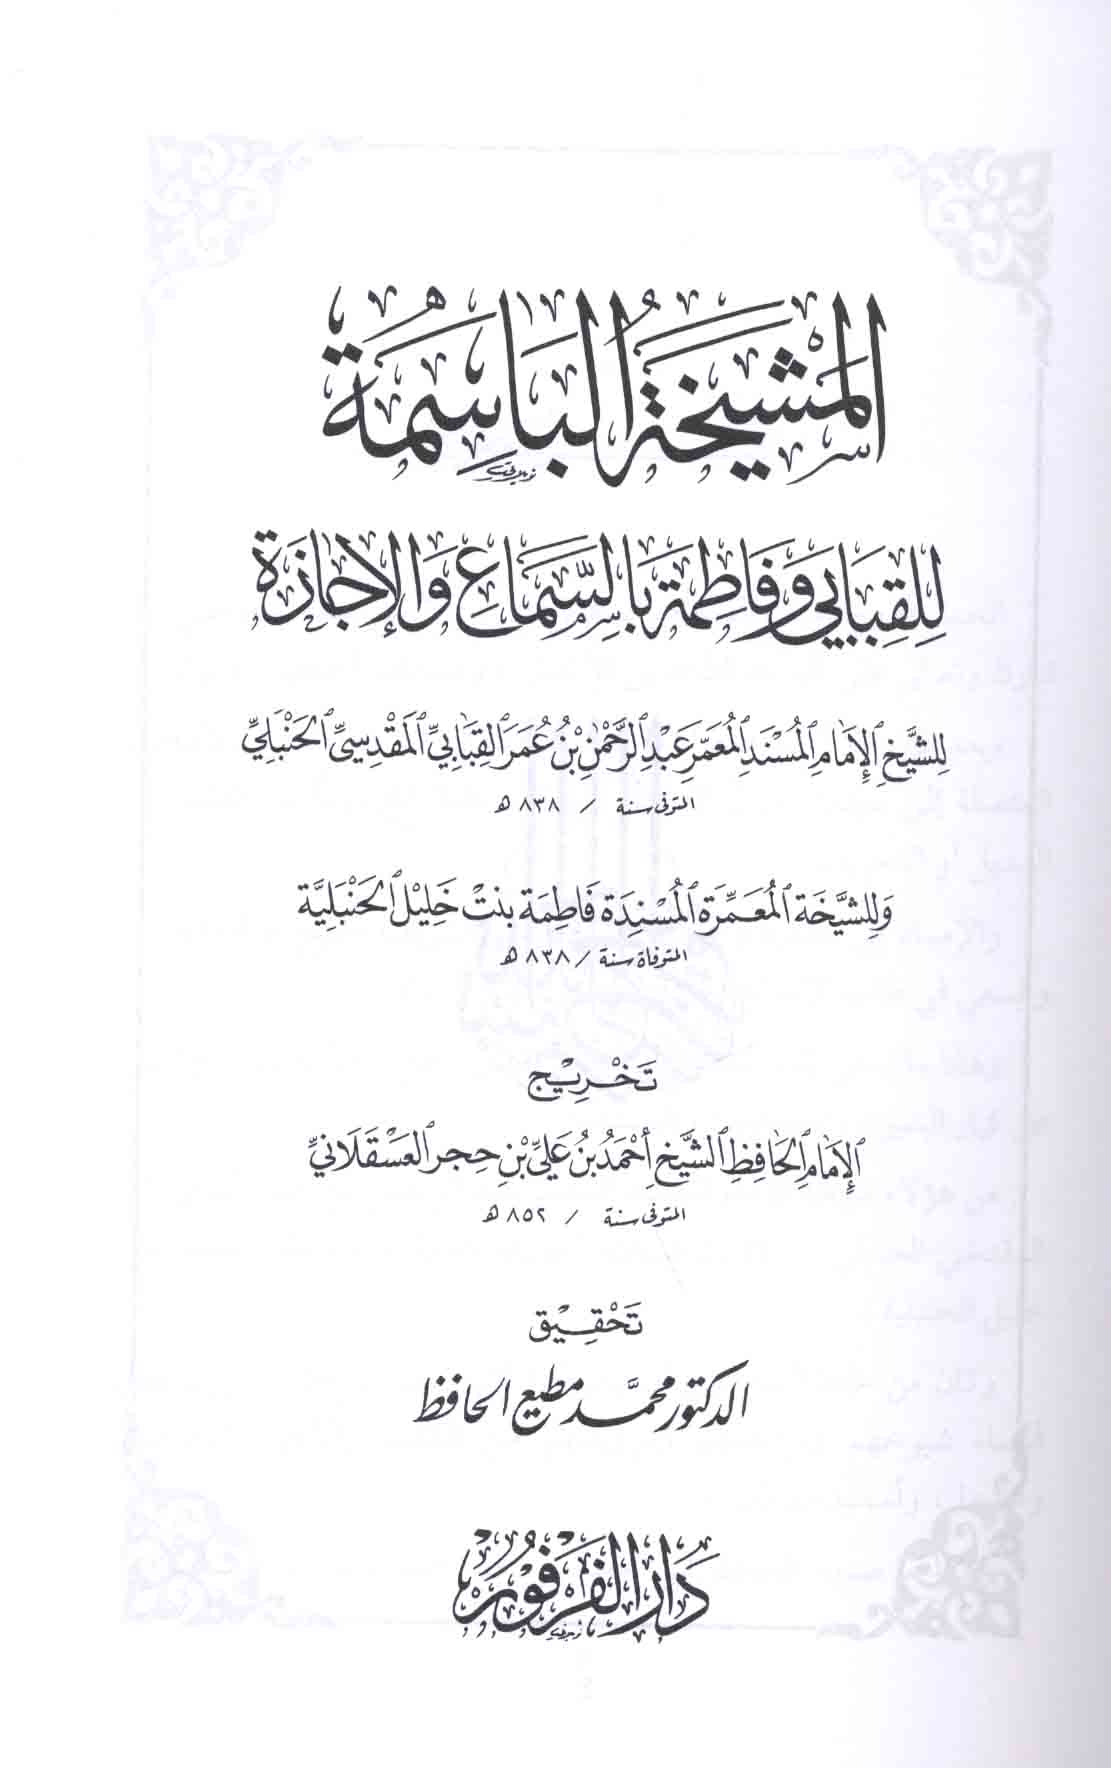 المَشْيَخَةُ البَاسِمَة
لِلقِبَابِي وَفَاطِمَة بَالسَّمَاعِ وَالإِجَازَة
لِلشَّيْخِ الإِمَامِ المُسْنَدِ المُعَمَّرِ عَبْدِ الرَّحْمٰنِ بْنِ عُمَرَ القِبَابِيِّ المَقْدِسِيِّ الحَنْبَلِيِّ
المتوفى سنة / ٨٣٨ هـ
وَلِلشَّيْخَة المُعَمِّرَة المُسْنِدَة فَاطِمَة بِنتْ خَلِيْل الحَنْبَلِيَّة
المتوفاة سنة / ٨٣٨ هـ
تَخْرِيْج
الإِمَامِ الحَافِظِ الشَّيْخ أَحْمَدُ بْنُ عَلِيِّ بْنِ حِجر العَسْقَلَانيِّ
المتوفى سنة / ٨٥٢ هـ
تَحْقِيْق
الدكتور محمَّد مطيع الحافظ
دَارُ الفَرْفُوْر